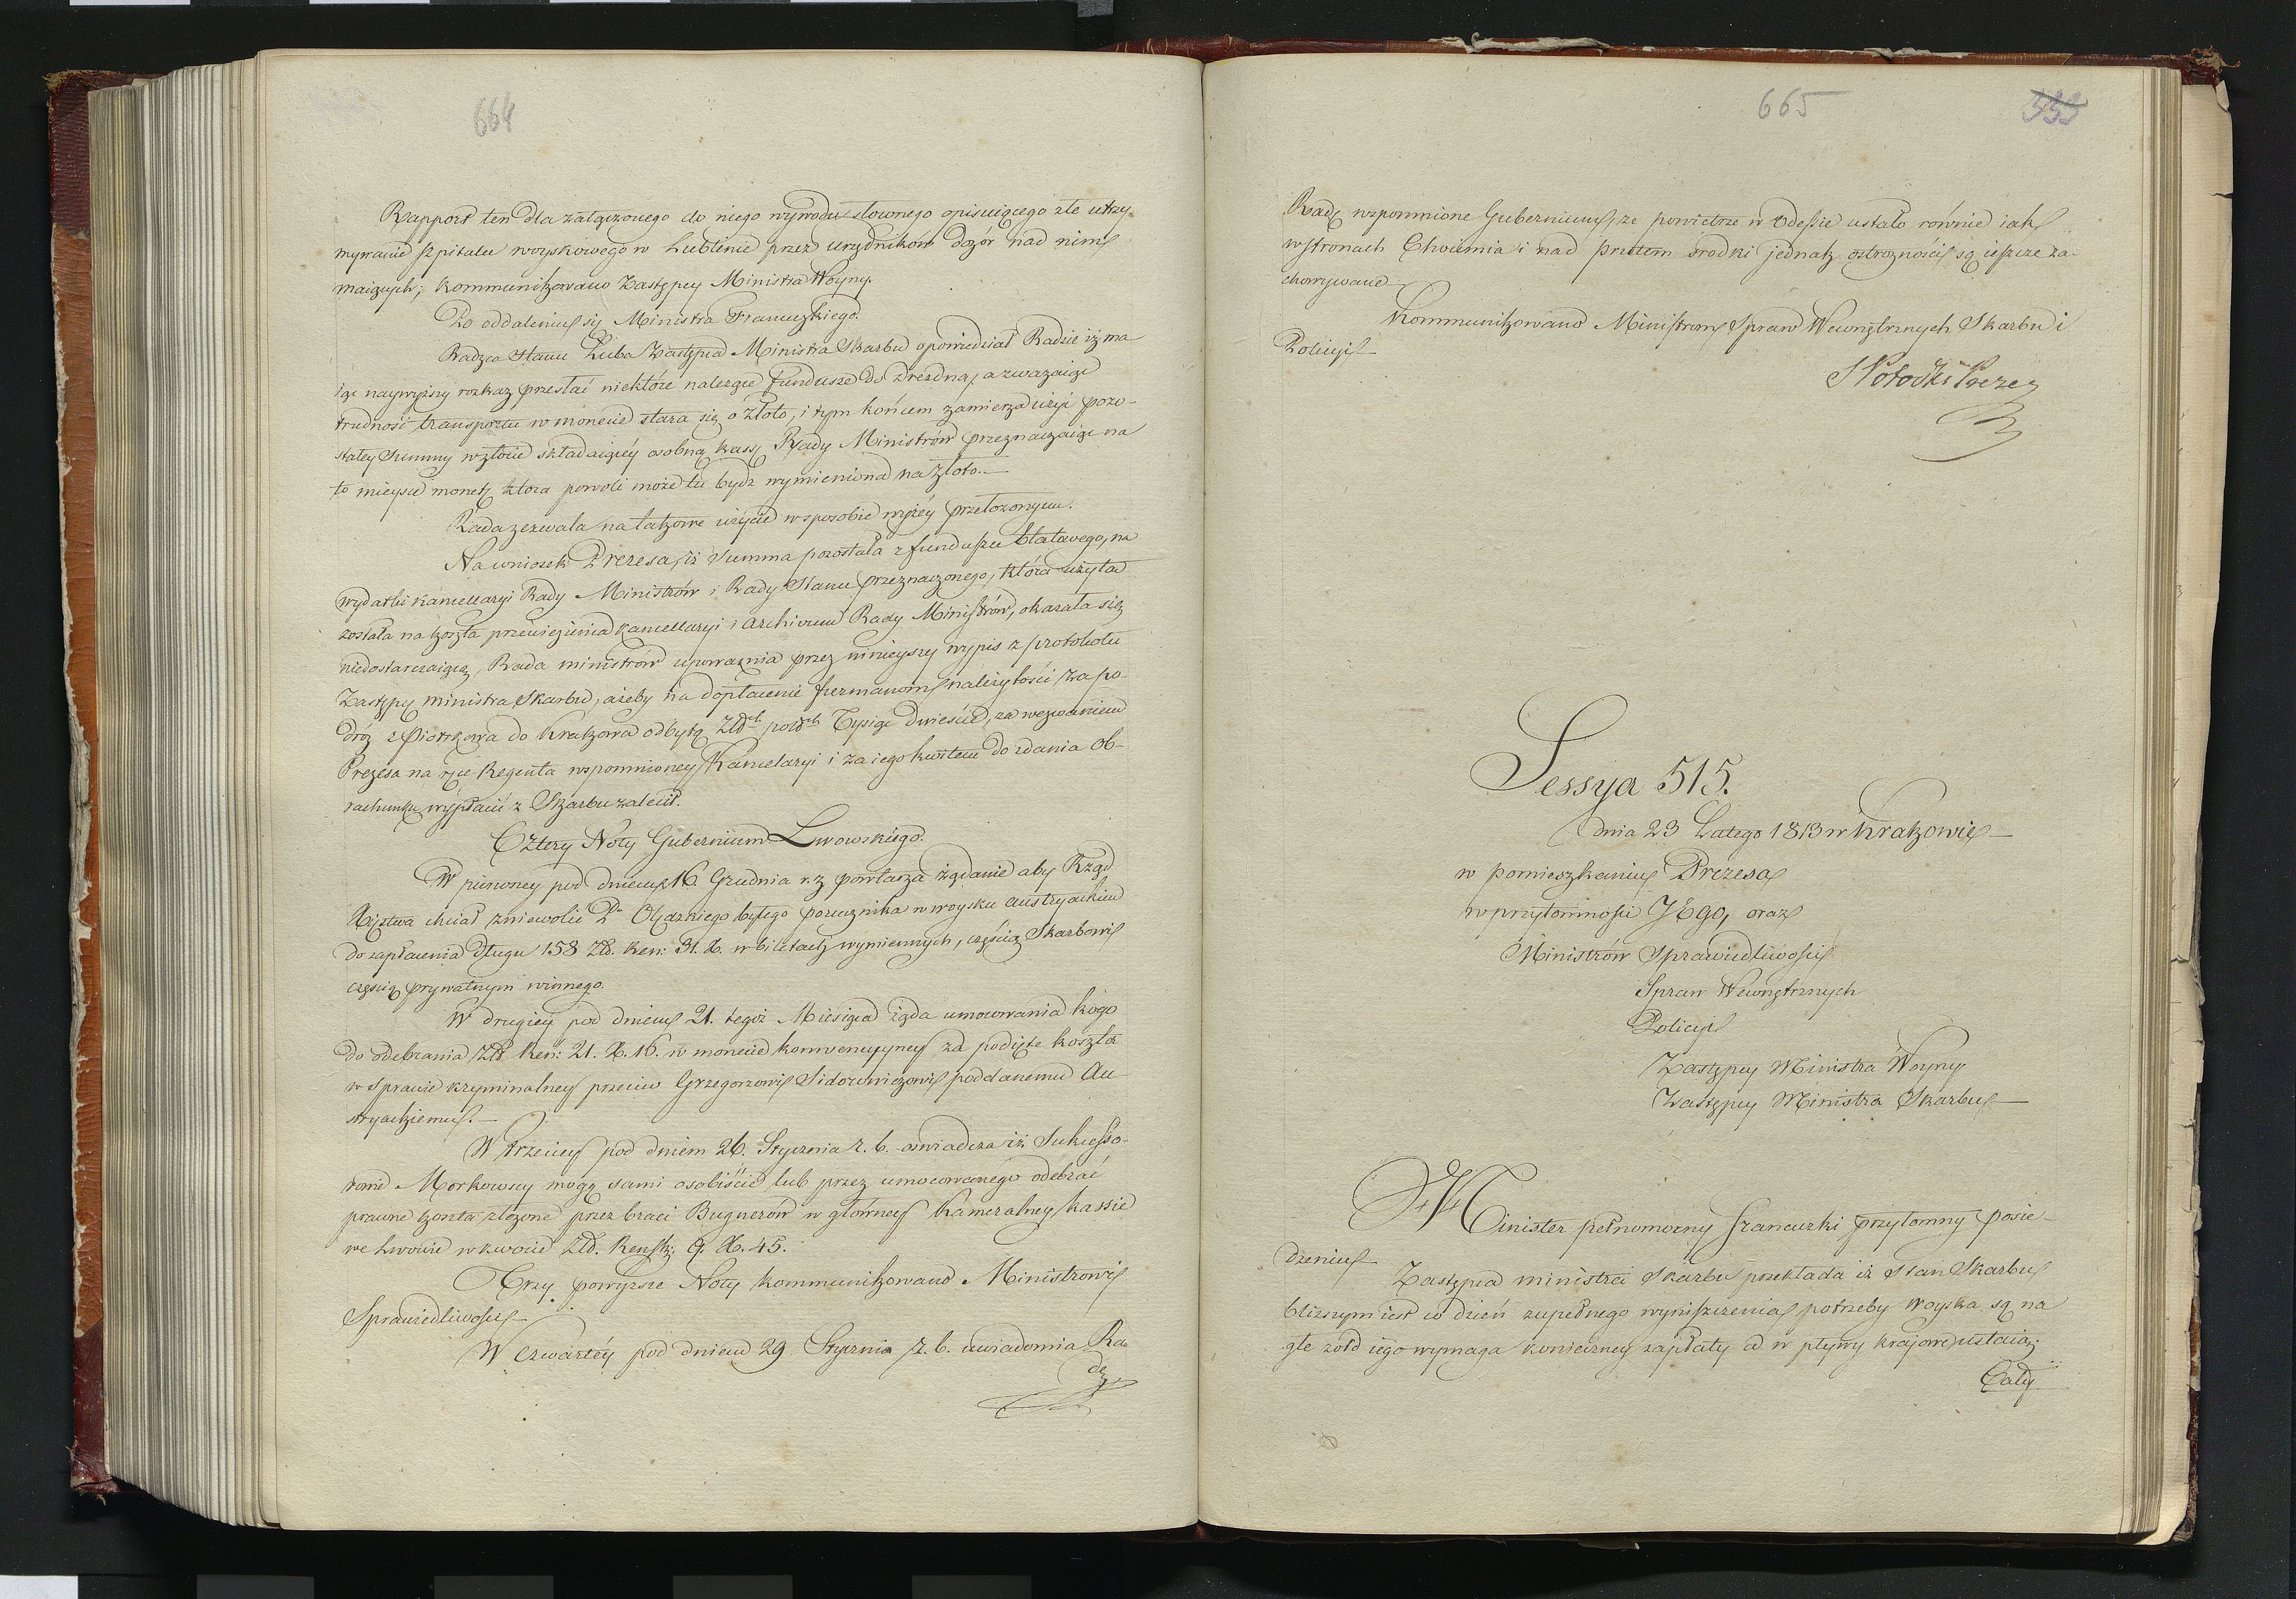 664
Rapport ten dla załączonego do niego wywodu słownego opisuiącego złe utrzy-
mywanie szpitalu woyskowego w Lublinie przez urzędników dozór nad nim
maiących; kommunikowano Zastępcy Ministra Woyny.
Po oddaleniu się Ministra Francuzkiego.
Radzca Stanu Łuba Zastępca Ministra Skarbu opowiedział Radzie iż ma
iąc naywyższy rozkaz przesłać niektóre należące fundusze do Drezdna, a zważaiąc
trudność transportu w monecie stara się o złoto, i tym końcem zamierza użyć pozo-
stałey Summy w złocie składaiącéy osobną kassę Rady Ministrów przeznaczaiąc na
to mieysce monetę która powoli może tu bydź wymieniona na złoto.
Rada zezwala na takowe użycie w sposobie wyżéy przełożonym.
Na wniosek Prezesa, iż Summa pozostała z funduszu Etatowego, na
wydatki kancellaryi Rady Ministrów i Rady Stanu przeznaczonego, która użyta
została na koszta przewiezienia kancellaryi i Archivum Rady Ministrów, okazała się
niedostarczaiącą, Rada ministrów upoważnia przez ninieyszy wypis z protokołu
Zastępcę ministra Skarbu, ażeby na dopłacenie furmanom należytości za po-
dróż z Piotrkowa do Krakowa odbytą Złtch polsch Tysiąc dwieście, za wezwaniem
Prezesa na ręce Regenta wspomnioney Kancelaryi i za iego kwitem do zdania ob-
rachunku wypłacić z Skarbu zalecił.
Cztery Noty Gubernium Lwowskiego.
W pierwszey pod dniem 16. Grudnia r. z. powtarza żądanie aby Rząd
Xięstwa chciał zniewolić Pa Olędzkiego byłego porucznika w woysku austryackim
do zapłacenia długu 158 Zł. Ren: 31. X. w biletach wymiennych, częścią Skarbowi
częścią prywatnym winnego.
W drugiey pod dniem 21. tegoż Miesiąca żąda umocowania kogo
do odebrania Zł. Ren: 21. X. 16. w monecie konwencyiney za podięte koszta
w sprawie kryminalney przeciw Grzegorzowi Sidorowiczowi poddanemu Au-
stryackiemu.
W trzeciey pod dniem 26. Stycznia r. b. oswiadcza iż Sukcesso-
rowie Morkowscy mogą sami osobiście lub przez umocowanego odebrać
prawne koszta złożone przez braci Bugnerów w główney Kameralney kassie
we Lwowie w kwocie Zł. Reńsk: 9. X. 45.
Trzy powyższe Noty kommunikowano Ministrowi
Sprawiedliwości
W czwartéy pod dniem 29 Stycznia r. b. uwiadomia Ra-
dę
665
333
Radę wspomnione Gubernium, że powietrze w Odessie ustało równie iak
w stronach Chocimia i nad Prutem środki jednak ostrożności są ieszcze za-
chowywane
Kommunikowano Ministrom Spraw Wewnętrznych Skarbu i
Policyi
S Potocki Prezes
Sessya 515.
dnia 23 Lutego 1813 w Krakowie
w pomieszkaniu Prezesa
w przytomności JEgo, oraz
Ministrów Sprawiedliwości
Spraw Wewnętrznych
Policyi
Zastępcy Ministra Woyny
Zastępcy Ministra Skarbu
Minister pełnomocny francuzki przytomny posie-
dzeniu
Zastępca ministra Skarbu przekłada iż stan Skarbu
bliższym iest co dzień zupełnego wyniszczenia potrzeby Woyska są na
głe żołd iego wymaga konieczney zapłaty a w pływy kraiowe ustaią;
Cały